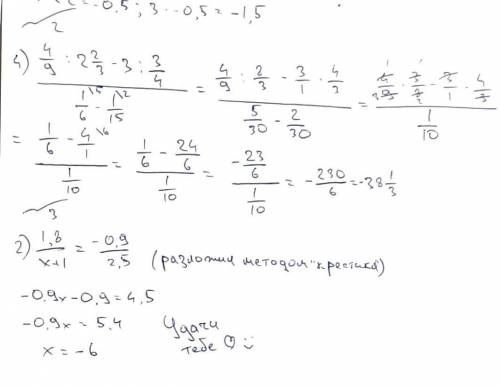 2 = -0,5 ; 3 · -0,5 = -1,5
2
4) 4/9 : 2 2/3 - 3 : 3/4 / 1/6 \5 - 1/15 \2 = 4/9 : 2/3 - 3/1 · 4/3 / 5/30 - 2/30 = · - 3/1 · 4/3 / 1/10
= 1/6 - 4/1 \6 / 1/10 = 1/6 - 24/6 / 1/10 = -23/6 / 1/10 = -230/6 = -38 1/3
3
2) 1,8/x+1 = -0,9/2,5 (разложим методом "крестика")
-0,9x - 0,9 = 4,5
-0,9x = 5,4 Удачи
x = -6 тебе ♡